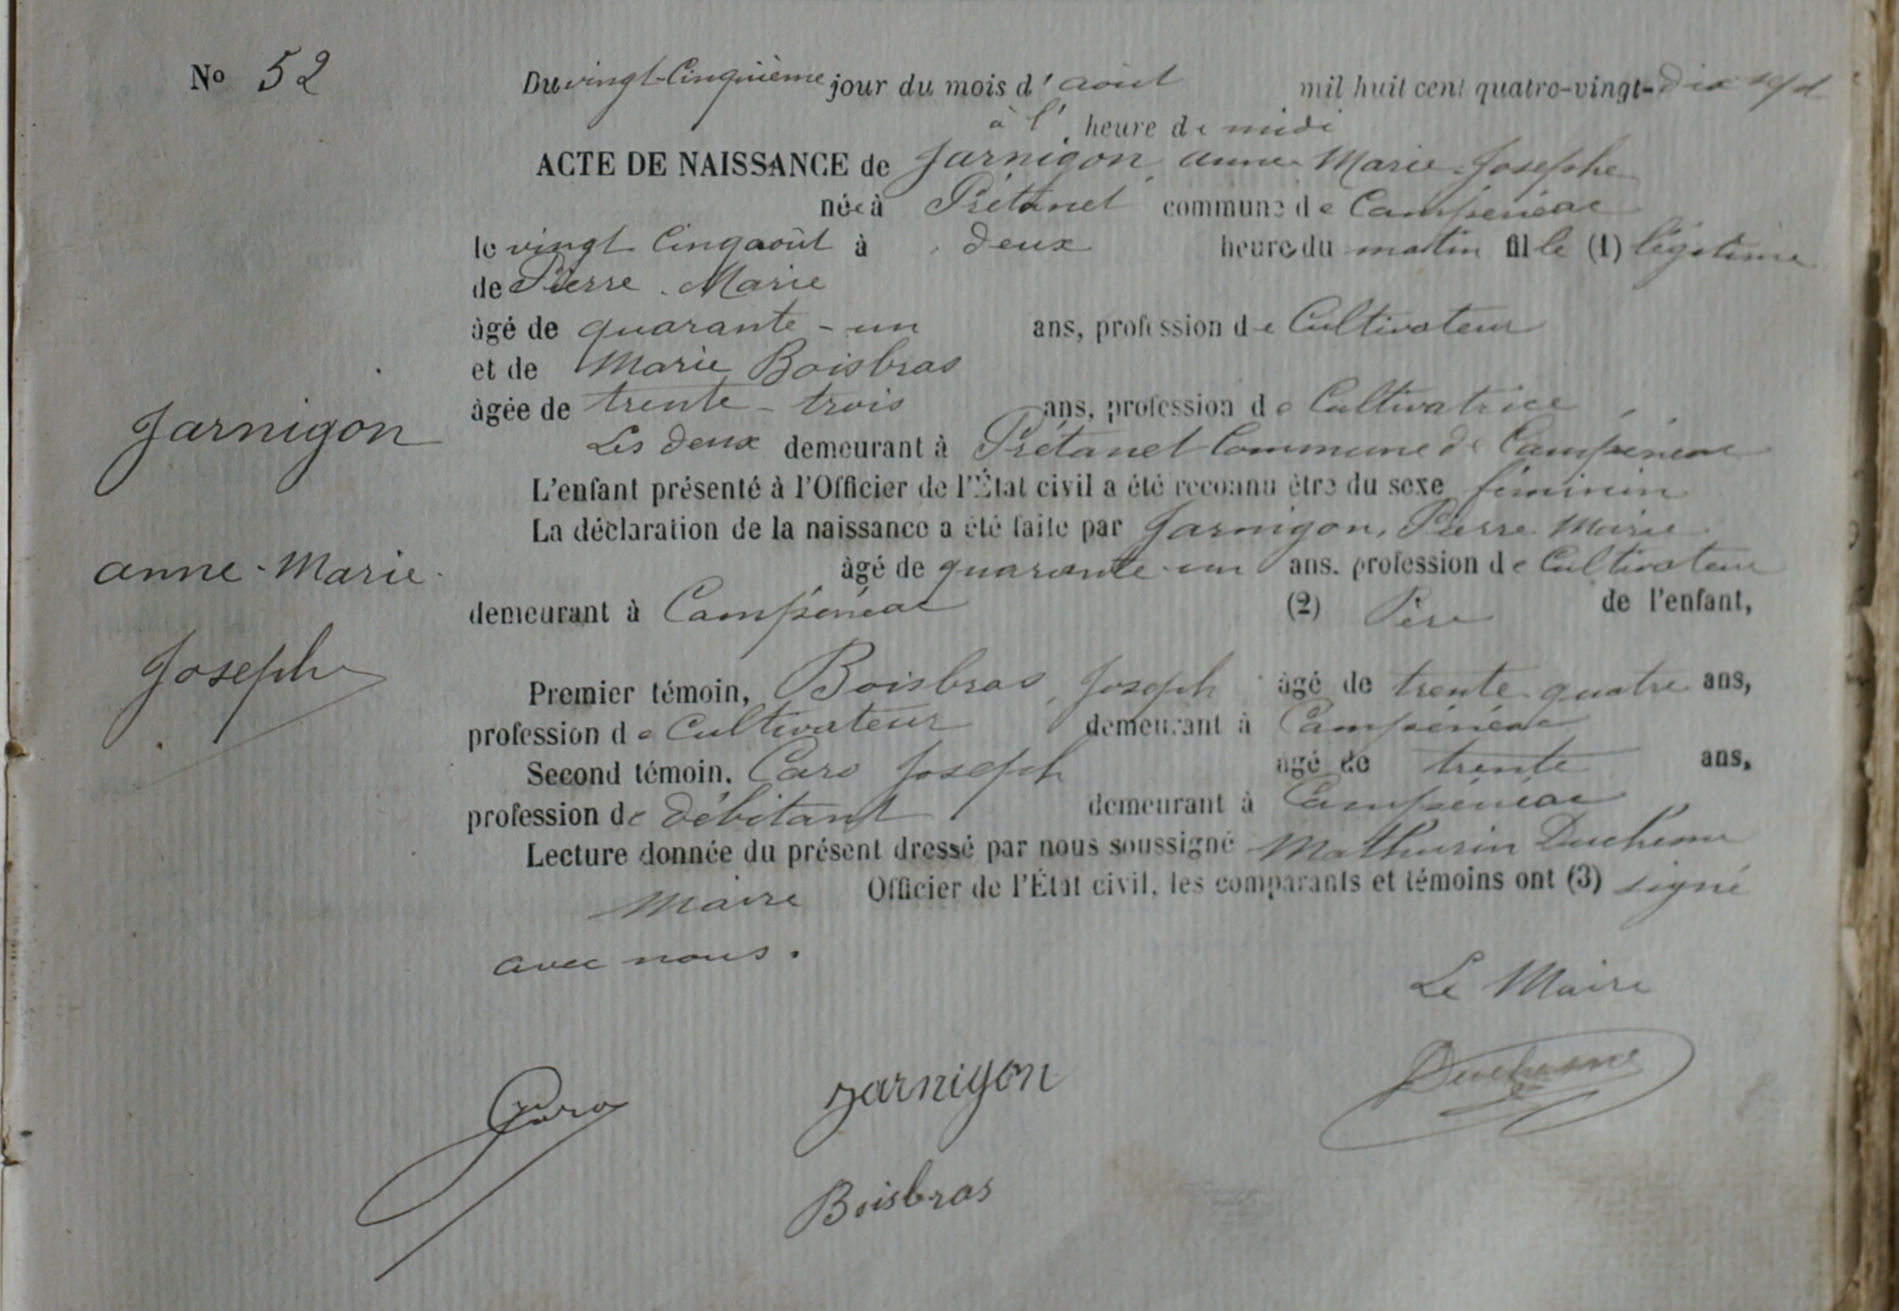 No 52
Du vingt-Cinquième jour du mois d'août mil huit cent quatre-vingt-dix sept
à l' heure de midi
ACTE DE NAISSANCE de Jarnigon, anne-Marie-Josephe
née à Prétanet commune de Campénéac
le vingt Cinq août à deux heure du matin fille (1) légitime
de Pierre Marie
âgé de quarante-un ans, profession de Cultivateur
et de Marie Boisbras
âgée de trente-trois ans, profession de Cultivatrice
Les deux demeurant à Prétanet Commune de Campénéac
L'enfant présenté à l'Officier de l'État civil a été reconnu être du sexe féminin
La déclaration de la naissance a été faite par Jarnigon, Pierre Marie
âgé de quarante-un ans, profession de Cultivateur
demeurant à Campénéac (2) Père de l'enfant,
Jarnigon
anne-Marie-
Josephe
Premier témoin, Boisbras, Joseph âgé de trente quatre ans,
profession de Cultivateur demeurant à Campénéac
Second témoin, Caro Joseph âgé de trente ans,
profession de débitant demeurant à Campénéac
Lecture donnée du présent dressé par nous soussigné Mathurin Duchesne
Maire Officier de l'État civil, les comparants et témoins ont (3) signé
avec nous.
Le Maire
Caro Jarnigon Duchesne
Boisbras